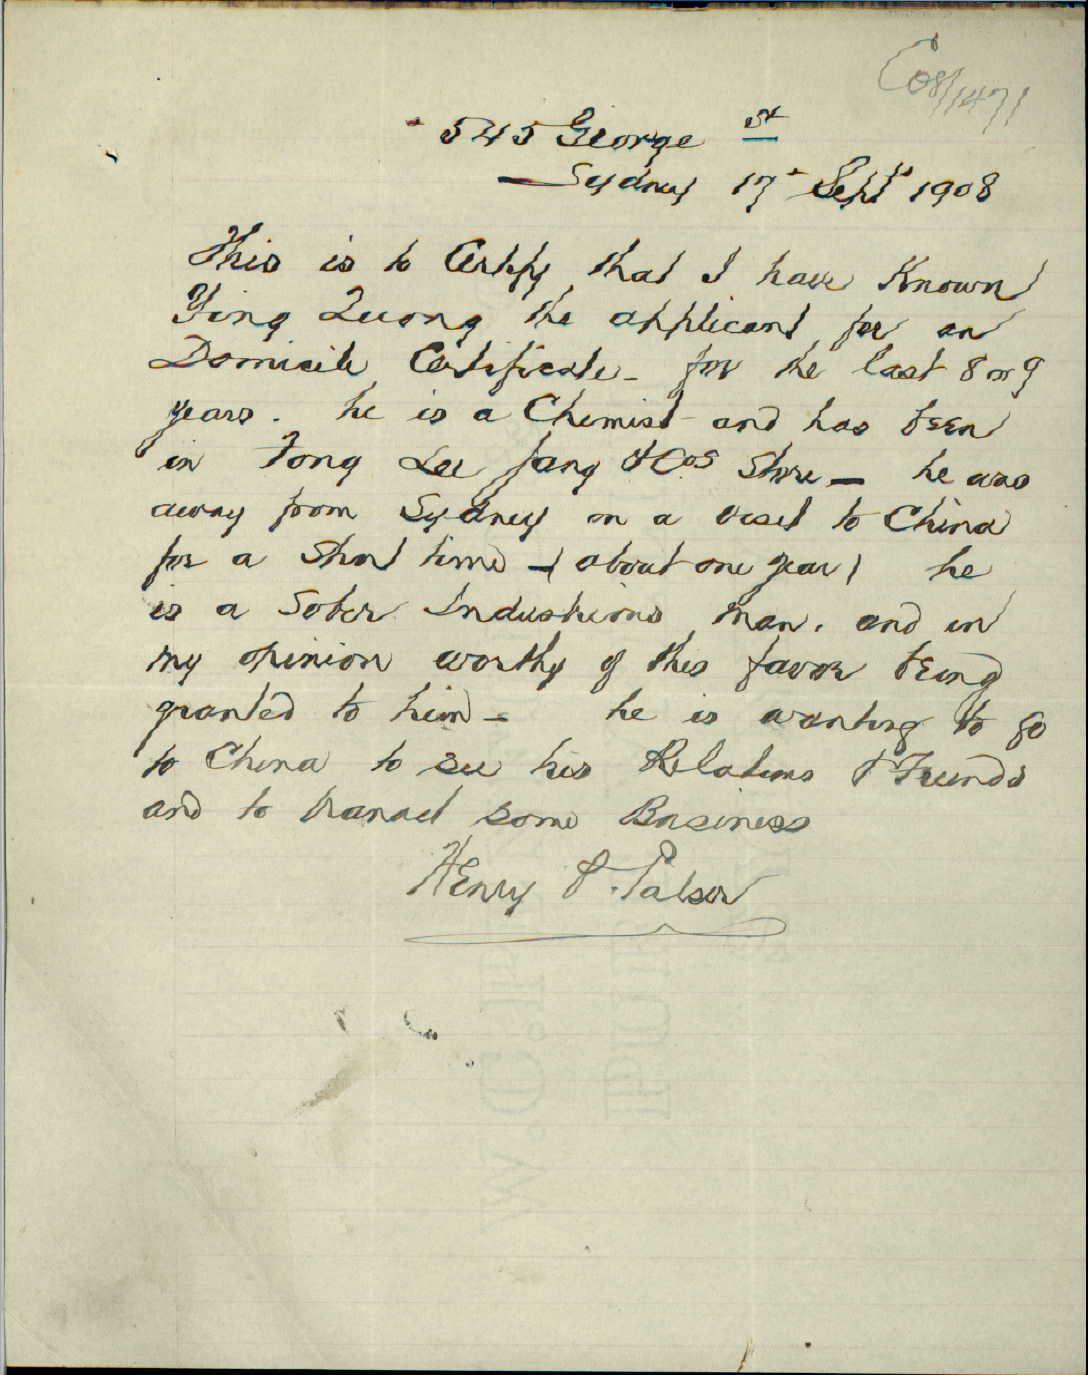 C08/1471
545 George St
Sydney 17th Sept 1908
This is to Certify that I have Known
Ying Quong the applicant for an
Domicile Certificate - for the last 8 or 9
years. he is a Chemist and has been
in Fong Lee Jang & Cos Store - he was
away from Sydney on a visit to China
for a Short time - (about one year) he
is a Sober Industrious man. and in
my opinion worthy of this favor being
granted to him - he is wanting to go
to China to see his Relations & Friends
and to transact some Business
Henry P. Palser